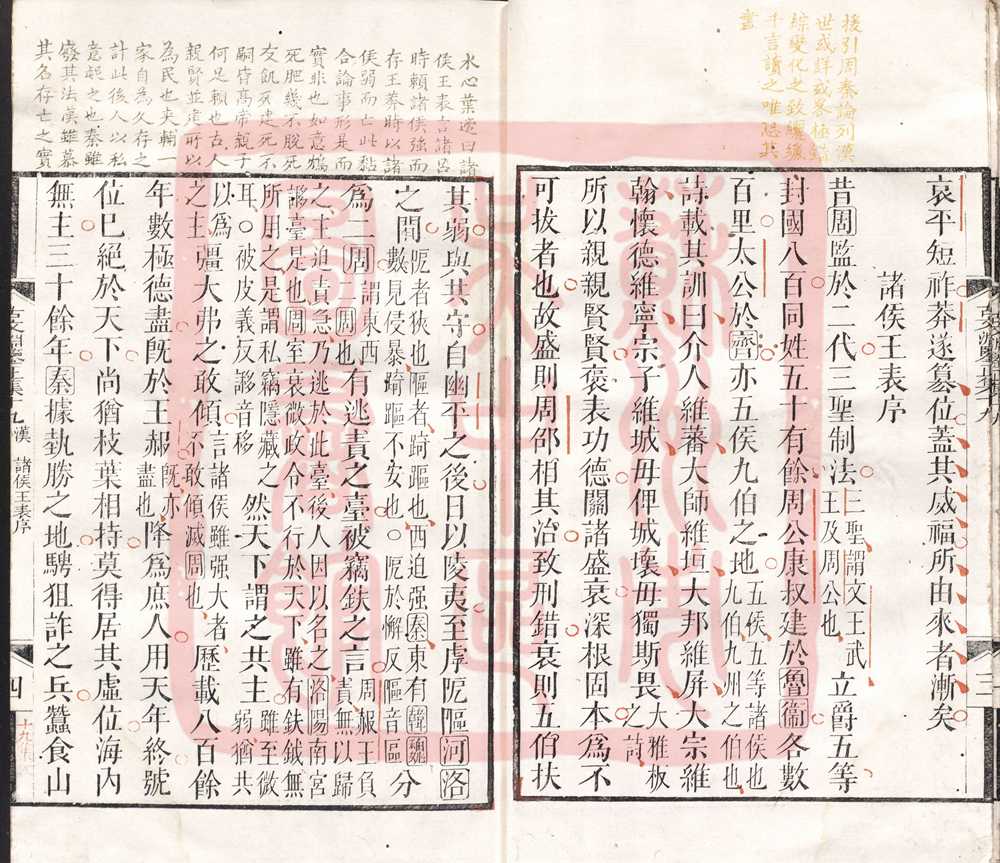 援引周秦論列漢
世或詳或畧極錯
綜變化之致纚纚
千言讀之唯恐其
盡
哀平短祚莽遂篡位蓋其威福所由來者漸矣
諸侯王表序
昔周監於二代三聖制法三聖謂文王武王及周公也立爵五等
封國八百同姓五十有餘周公康叔建於魯衞各數
百里太公於齊亦五侯九伯之地五侯五等諸侯也九伯九州之伯也
詩載其訓曰介人維藩大師維垣大邦維屏大宗維
翰懷德維寧宗子維城毋俾城壞毋獨斯畏大雅板之詩
所以親親賢賢褒表功德關諸盛衰深根固本為不
可拔者也故盛則周邵相其治致刑錯衰則五伯扶
三
水心葉適曰諸
侯王表言諸呂
時賴諸侯強而
存王莽時以諸
侯弱而亡此黏
合論事形其而
實非也如意鴆
死肥幾不脫死
友飢死建死不
嗣皆高帝親子
何足賴也古人
親賢並建所以
為民也夾輔一
家自為久存之
計此後人以私
意起之也秦雖
廢其法漢雖慕
其名存亡之實
其弱與共守自幽平之後日以陵夷至虖阨𨄅河洛
之間阨者狹也𨄅者踦𨄅也西迫强秦東有韓魏數見侵暴踦𨄅不安也○阨於懈反𨄅音區分
為二周謂東西二周也有逃責之臺被竊鈇之言周赧王負責無以歸之主迫責急乃逃於此臺後人因以名之洛陽南宮謻臺是也周室衰微政令不行於天下雖有鈇鉞無所用之是謂私竊隱藏之雖至微弱猶共以為之主
耳○被皮義反謻音移然天下謂之共主
彊大弗之敢傾言諸侯雖强大者不敢傾滅周也歷載八百餘
年數極德盡旣於王赧旣亦盡也降為庶人用天年終號
位已絕於天下尚猶枝葉相持莫得居其虛位海內
無主三十餘年秦據埶勝之地騁狙詐之兵蠶食山
漢 諸侯王表序
四